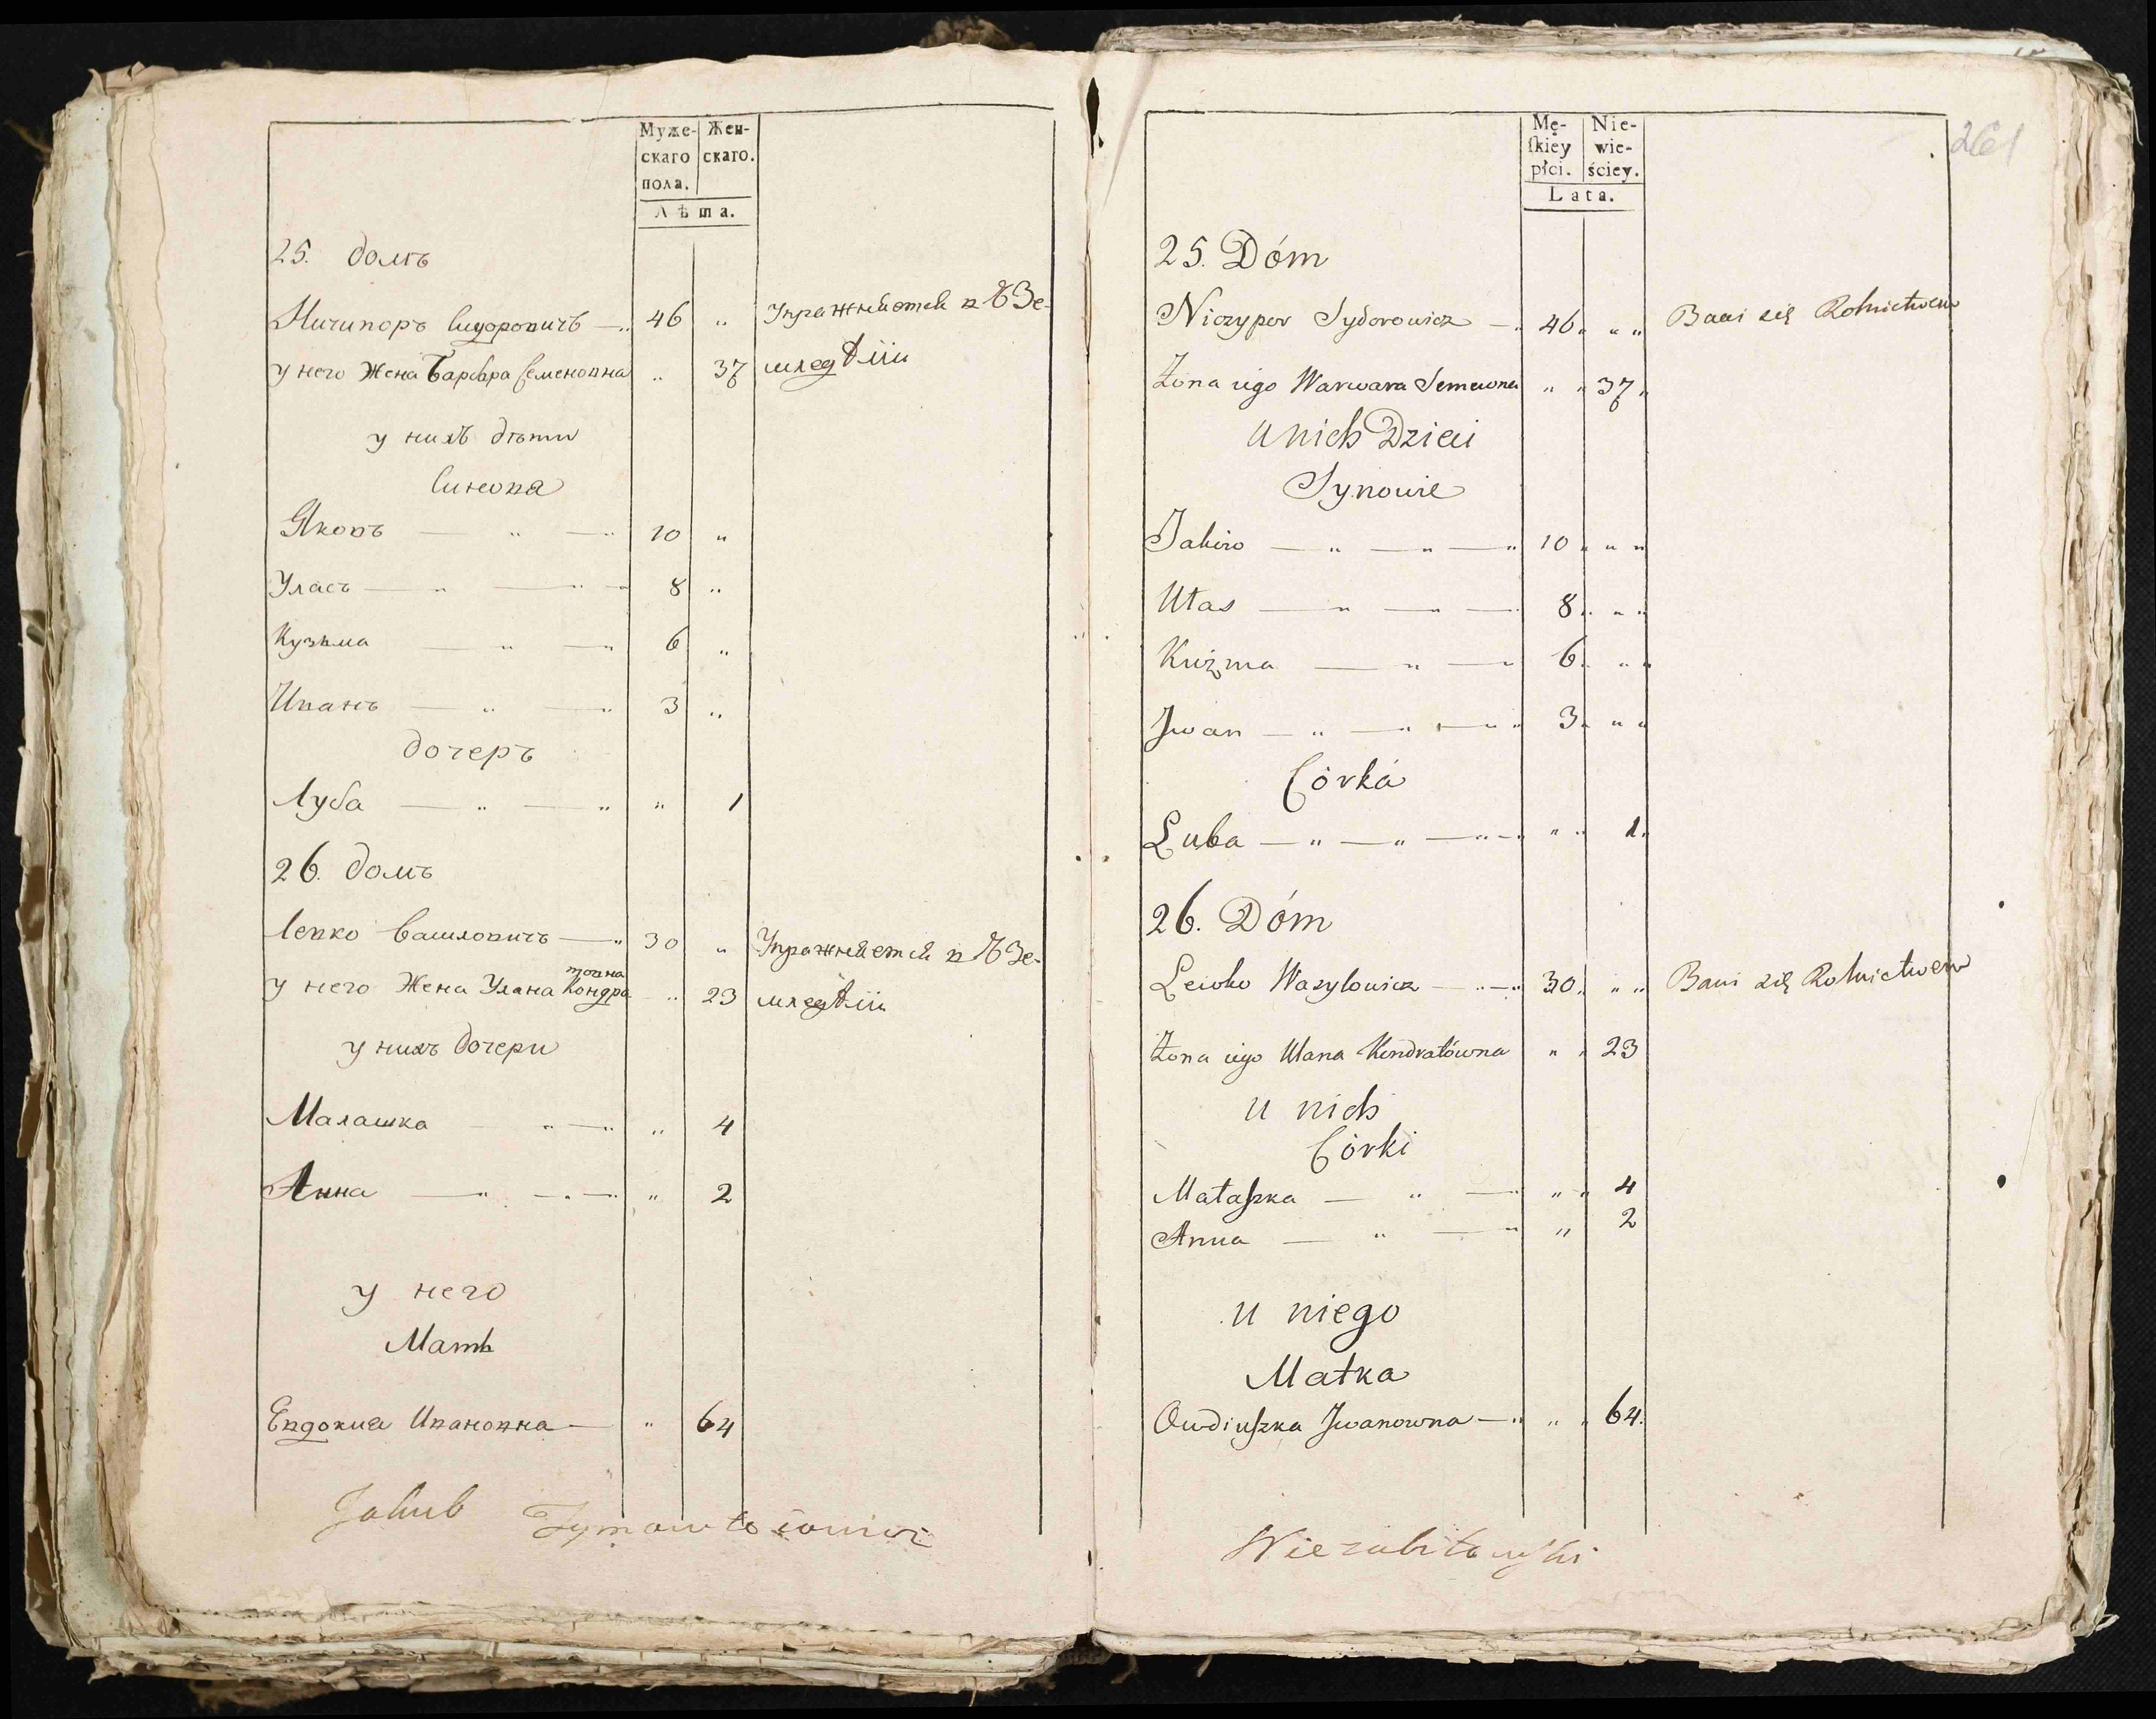 Муже-
скаго
пола.
Жен-
скаго.
Лѣта.
25. домъ
Ничипоръ Сидоровичъ — „ 46 „ Упражняется въ Зе-
у него Жена Варвара Семеновна „ 37 мледѣліи
у нихъ дѣти
Синова
Яковъ — „ — „ 10 „
Уласъ — „ — „ 8 „
Кузьма — „ — „ 6 „
Иванъ — „ — „ 3 „
дочеръ
Луба — „ — „ „ 1
26. домъ
Левко Василовичъ — „ 30 „ Упражняется въ Зе-
товна
у него Жена Улана Кондра „ 23 мледѣліи
у нихъ дочери
Малашка — „ — „ „ 4
Анна — „ — „ — „ „ 2
у него
Мать
Евдокия Ивановна — „ 64
Jakub
Mę-
ſkiey
płci.
Nie-
wie-
ściey.
Lata.
261
25. Dóm
Niczypor Sydorowicz — „ 46 „ „ „ Bawi się Rolnictwem
Żona iego Warwara Semenowna „ „ 37 „
U nich Dzieci
Synowie
Jakiw — „ — „ — „ 10 „ „ „
Ułas — „ — „ — 8 „ „ „
Kuźma — „ — „ 6 „ „ „
Jwan — „ — „ — „ „ 3 „ „ „
Córka
Luba — „ — „ — „ — „ „ „ 1 „
26. Dóm
Lewko Wasylowicz — „ — „ 30 „ „ „ Bawi się Rolnictwem
Żona iego Ulana Kondratówna „ „ 23
u nich
Córki
Małaſzka — „ — „ „ „ 4
Anna — „ — „ „ 2
u niego
Matka
Owdiuſzka Jwanowna — „ „ „ 64